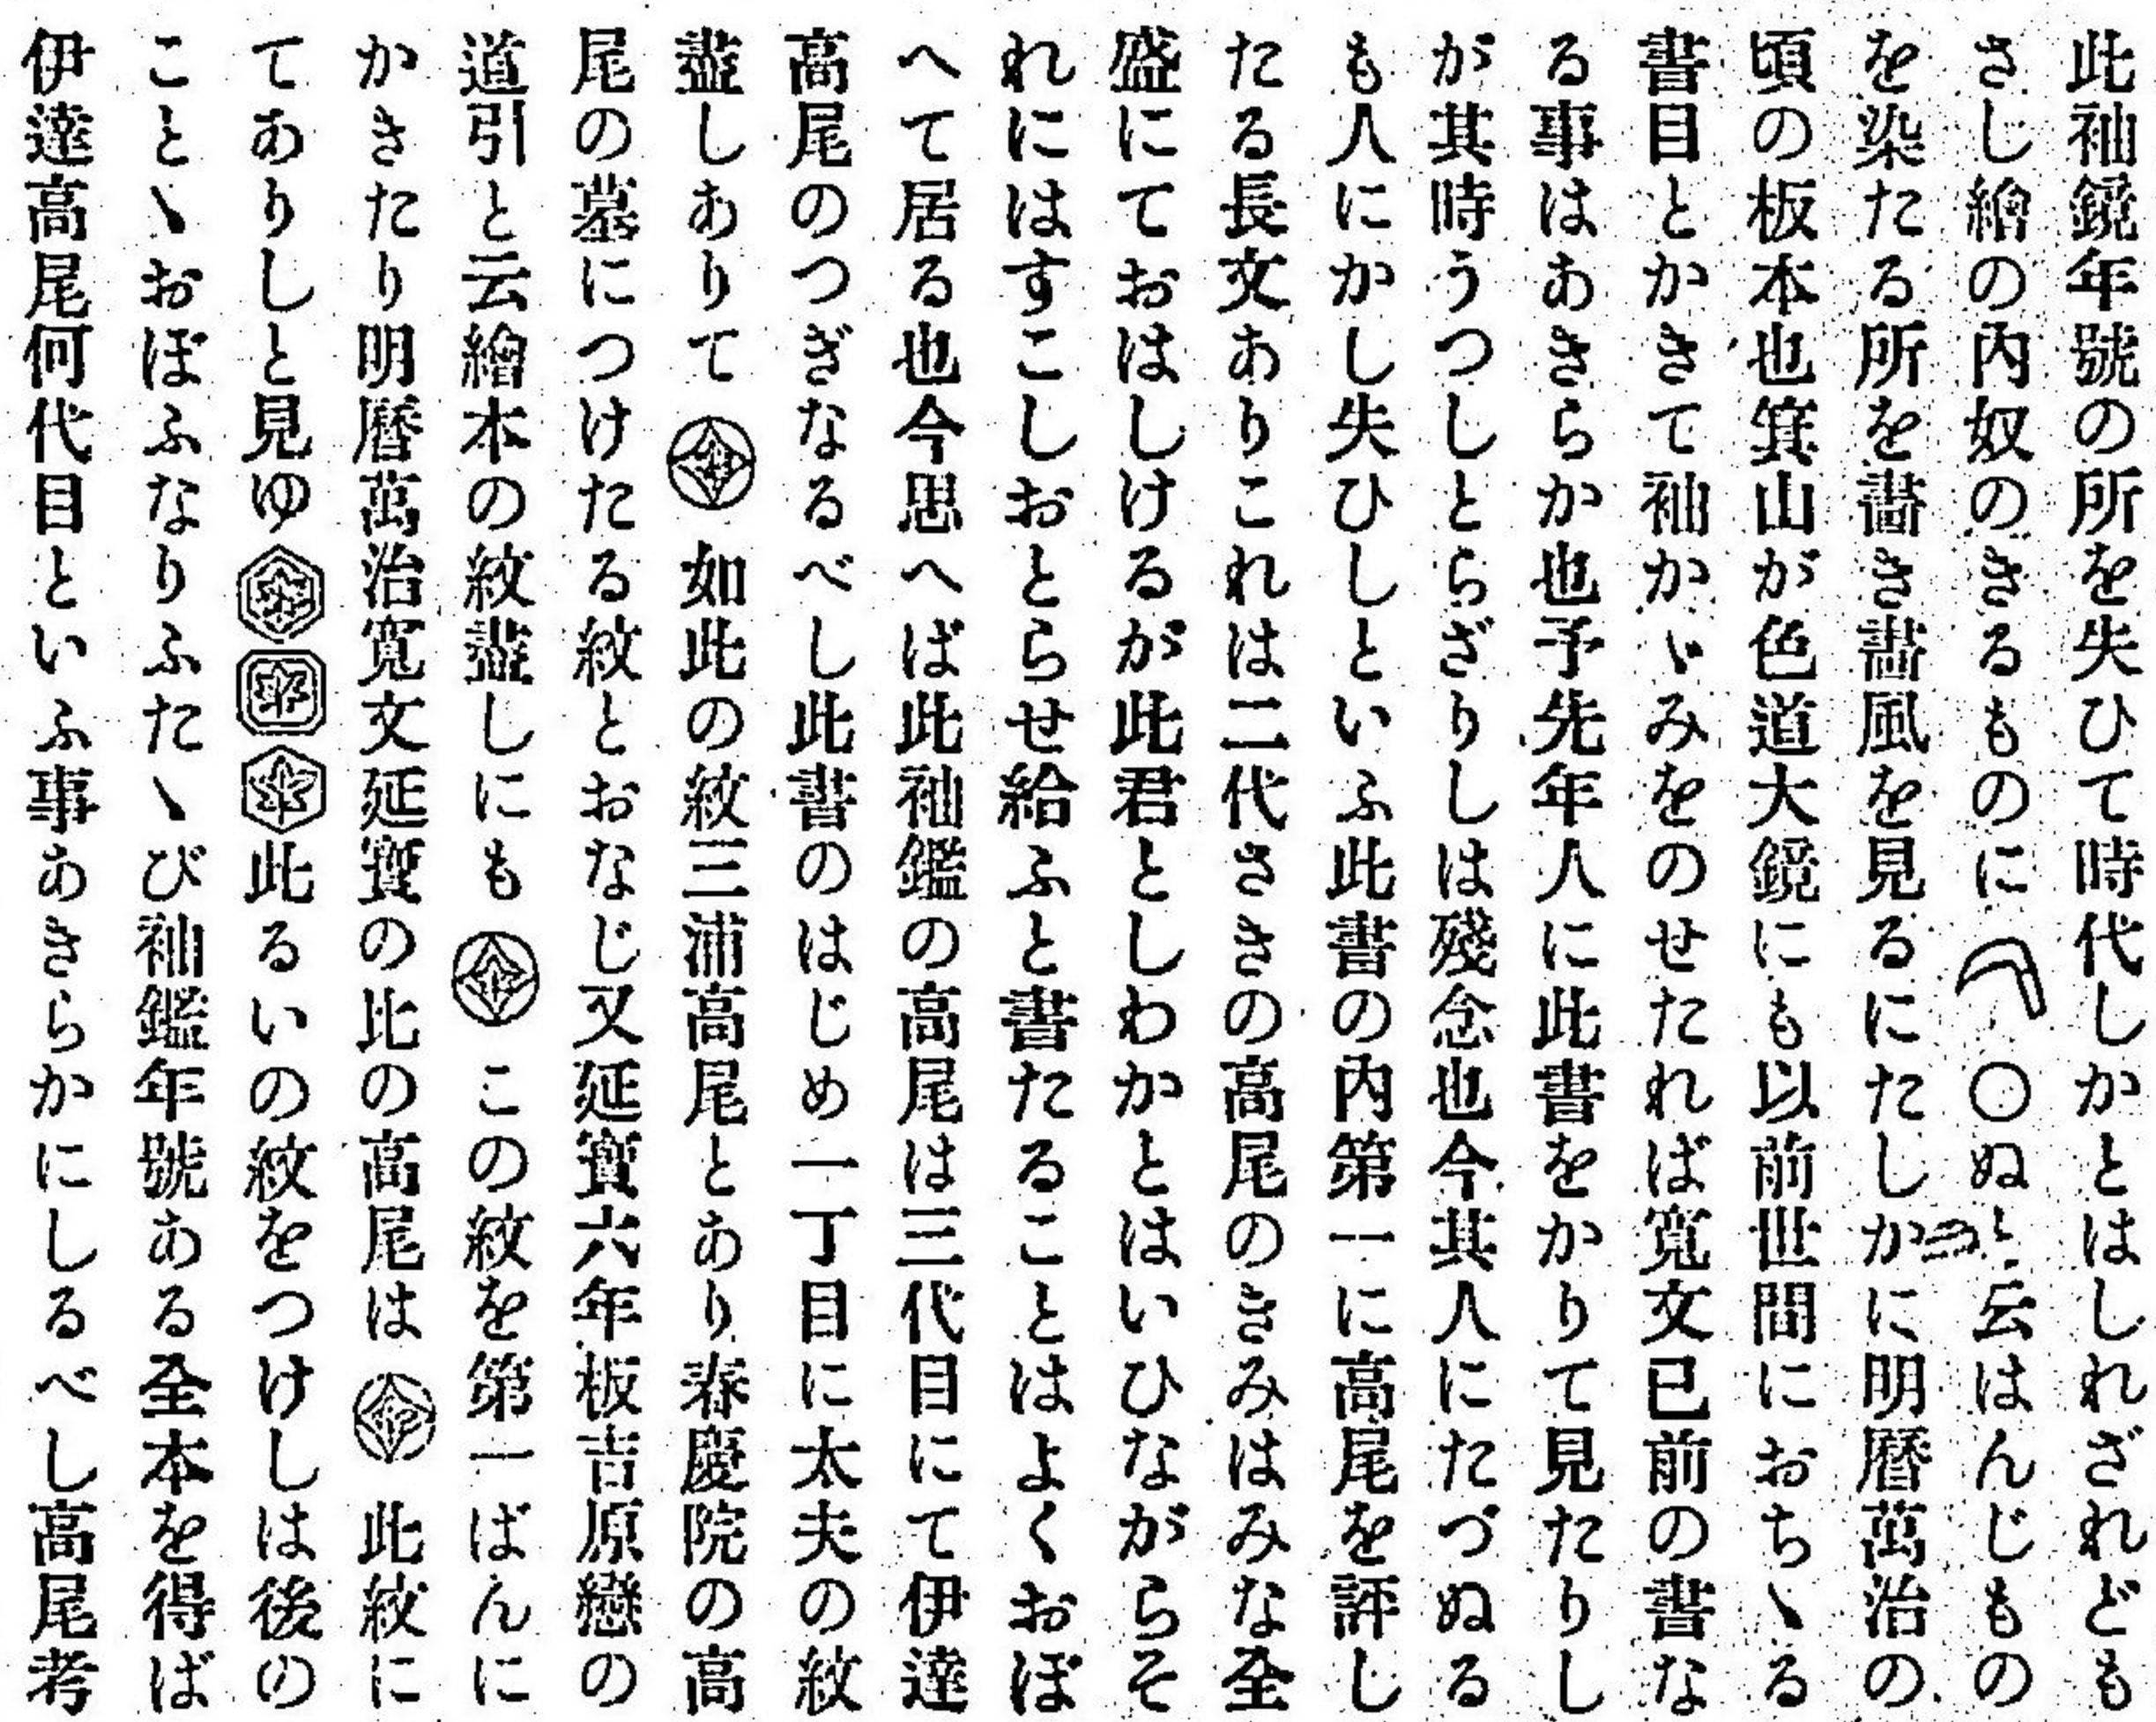 此袖鏡年號の所を失ひて時代しかとはしれざれども
さし繪の内奴のきるものに〇ぬと云はんじもの
を染たる所を畵き畵風を見るにたしかに明曆萬治の
頃の板本也箕山が色道大鏡にも以前世間におちゝる
書目とかきて袖かゞみをのせたれば寛文已前の書な
る事はあきらか也予先年人に此書をかりて見たりし
が其時うつしとらざりしは殘念也今其人にたづぬる
も人にかし失ひしといふ此書の内第一に高尾を評し
たる長文ありこれは二代さきの高尾のきみはみな全
盛にておはしけるが此君としわかとはいひながらそ
れにはすこしおとらせ給ふと書たることはよくおぼ
へて居る也今思へば此袖鑑の高尾は三代目にて伊達
高尾のつぎなるべし此書のはじめ一丁目に太夫の紋
盡しありて如此の紋三浦高尾とあり春慶院の高
尾の墓につけたる紋とおなじ又延寳六年板吉原戀の
道引と云繪本の紋盡しにもこの紋を第一ばんに
かきたり明曆萬治寛文延寳の比の高尾は此紋に
てありしと見ゆ此るいの紋をつけしは後の
ことゝおぼふなりふたゝび袖鑑年號ある全本を得ば
伊達高尾何代目といふ事あきらかにしるべし高尾考